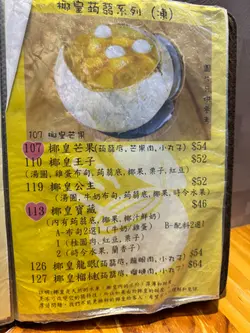 椰皇蒟蒻系列 (凍)
107 椰皇芒果
107 椰皇芒果(蒟蒻底,芒果肉,小丸子) $54
110 椰皇王子 $52
(湯圓,雞蛋布甸,蒟蒻底,椰果,栗子,紅豆)
119 椰皇公主 $52
(湯圓,牛奶布甸,蒟蒻底,椰果,時令水果)
113 椰皇寶藏 $46
(內有蒟蒻底,椰果,椰汁鮮奶)
A-布甸2選1 (牛奶/雞蛋) B-配料2選1
1 (桂圓肉,紅豆,栗子)
2 (時令水果,蘭香子)
126 椰皇龍眼(蒟蒻底,龍眼肉,小丸子) $54
127 椰皇榴槤(蒟蒻底,榴槤肉,小丸子) $64